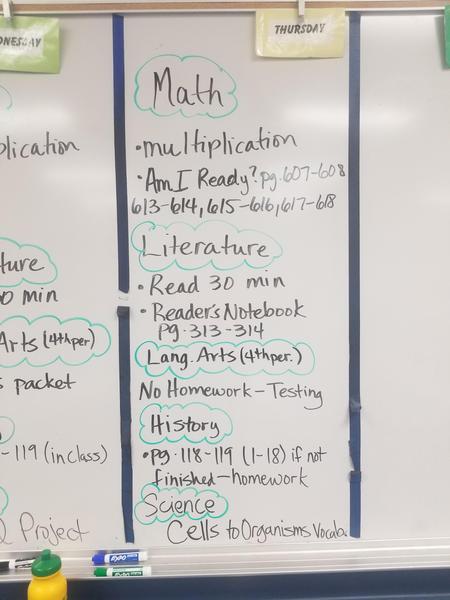 THURSDAY
Math
•multiplication
•Am I Ready? pg.607-608
613-614, 615-616, 617-618
Literature
• Read 30 min
• Reader's Notebook
pg.313-314
Lang. Arts (4th per.)
No Homework - Testing
History
•pg.118-119 (1-18) if not
finished-homework
Science
Cells to Organisms Vocab.
min
Arts (4thper)
packet
-119 (in class)
Project
EXPO
EXPO